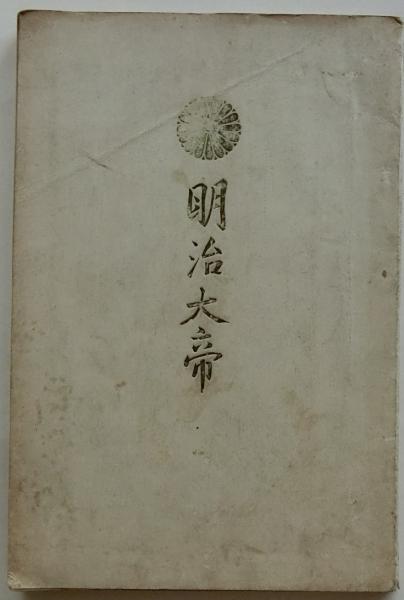 明治大帝